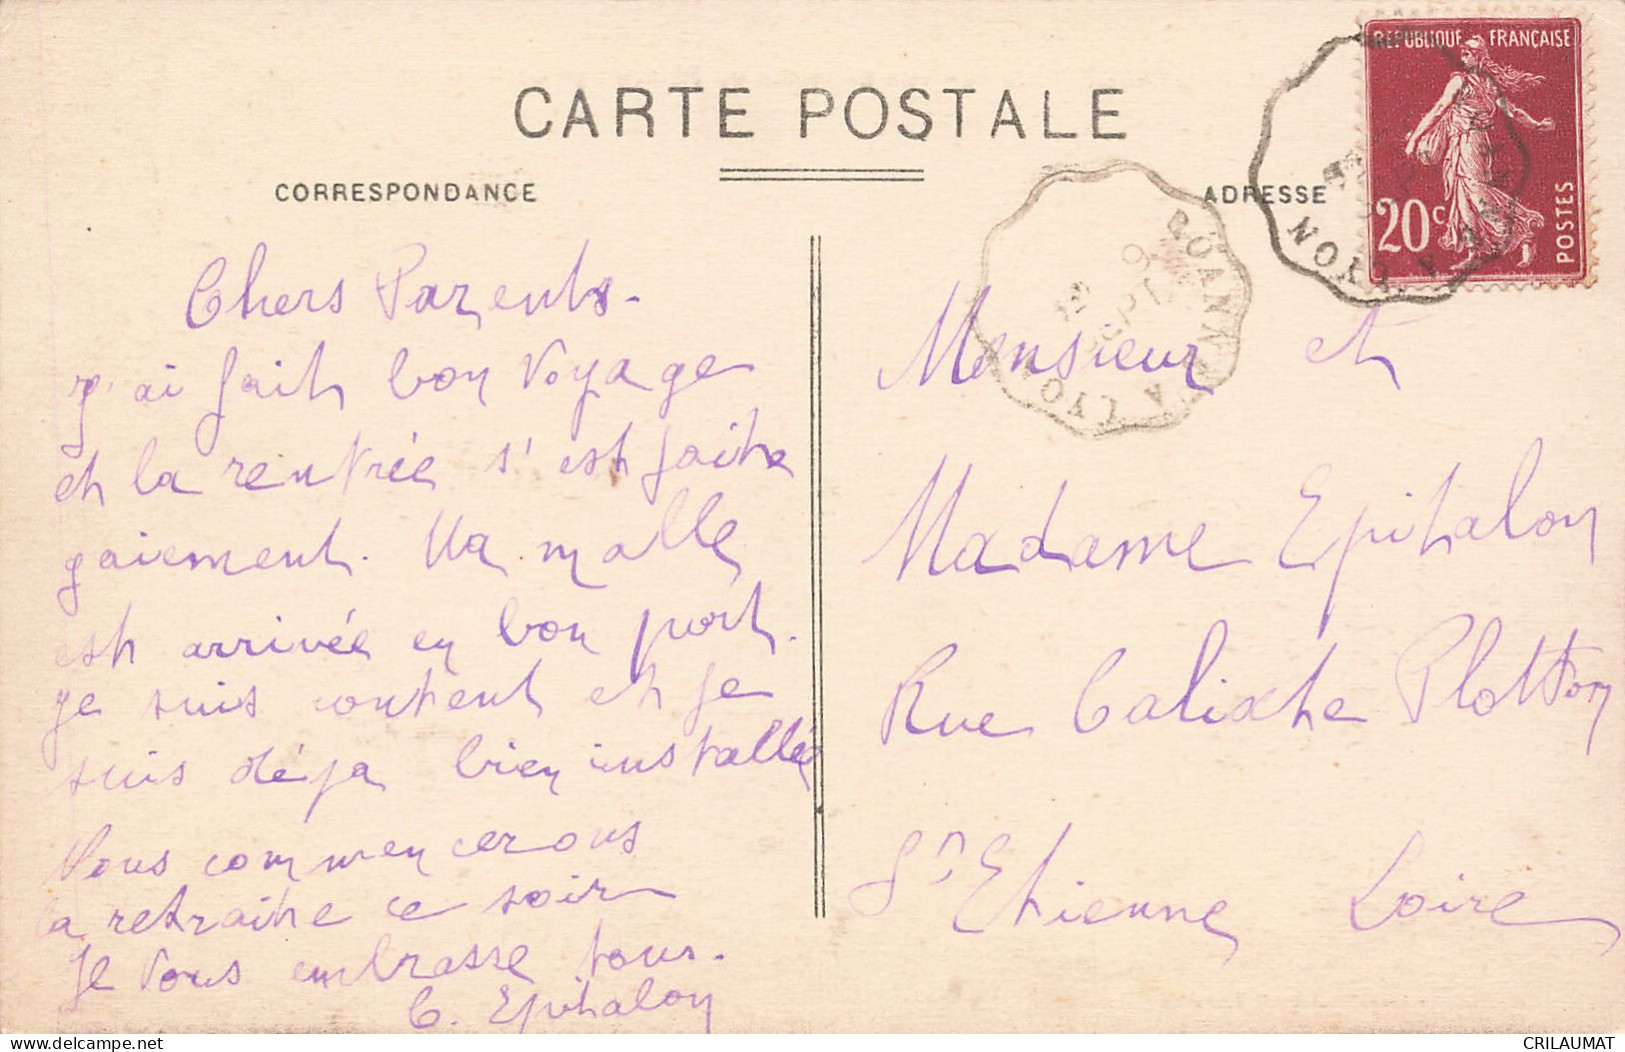 CARTE POSTALE
CORRESPONDANCE
ADRESSE
REPUBLIQUE FRANÇAISE
20c
POSTES
ROANNE A LYON
ROANNE A LYON
9
SEPT
Chers Parents.
J'ai fait bon voyage
et la rentrée s'est faite
gaiement. Ma malle
est arrivée en bon port.
je suis content et je
suis déja bien installé
Nous commencerons
la retraite ce soir
Je vous embrasse tous.
C. Epitalon
Monsieur et
Madame Epitalon
Rue Calixte Plotton
St Etienne Loire
delcampe.net
CRILAUMAT